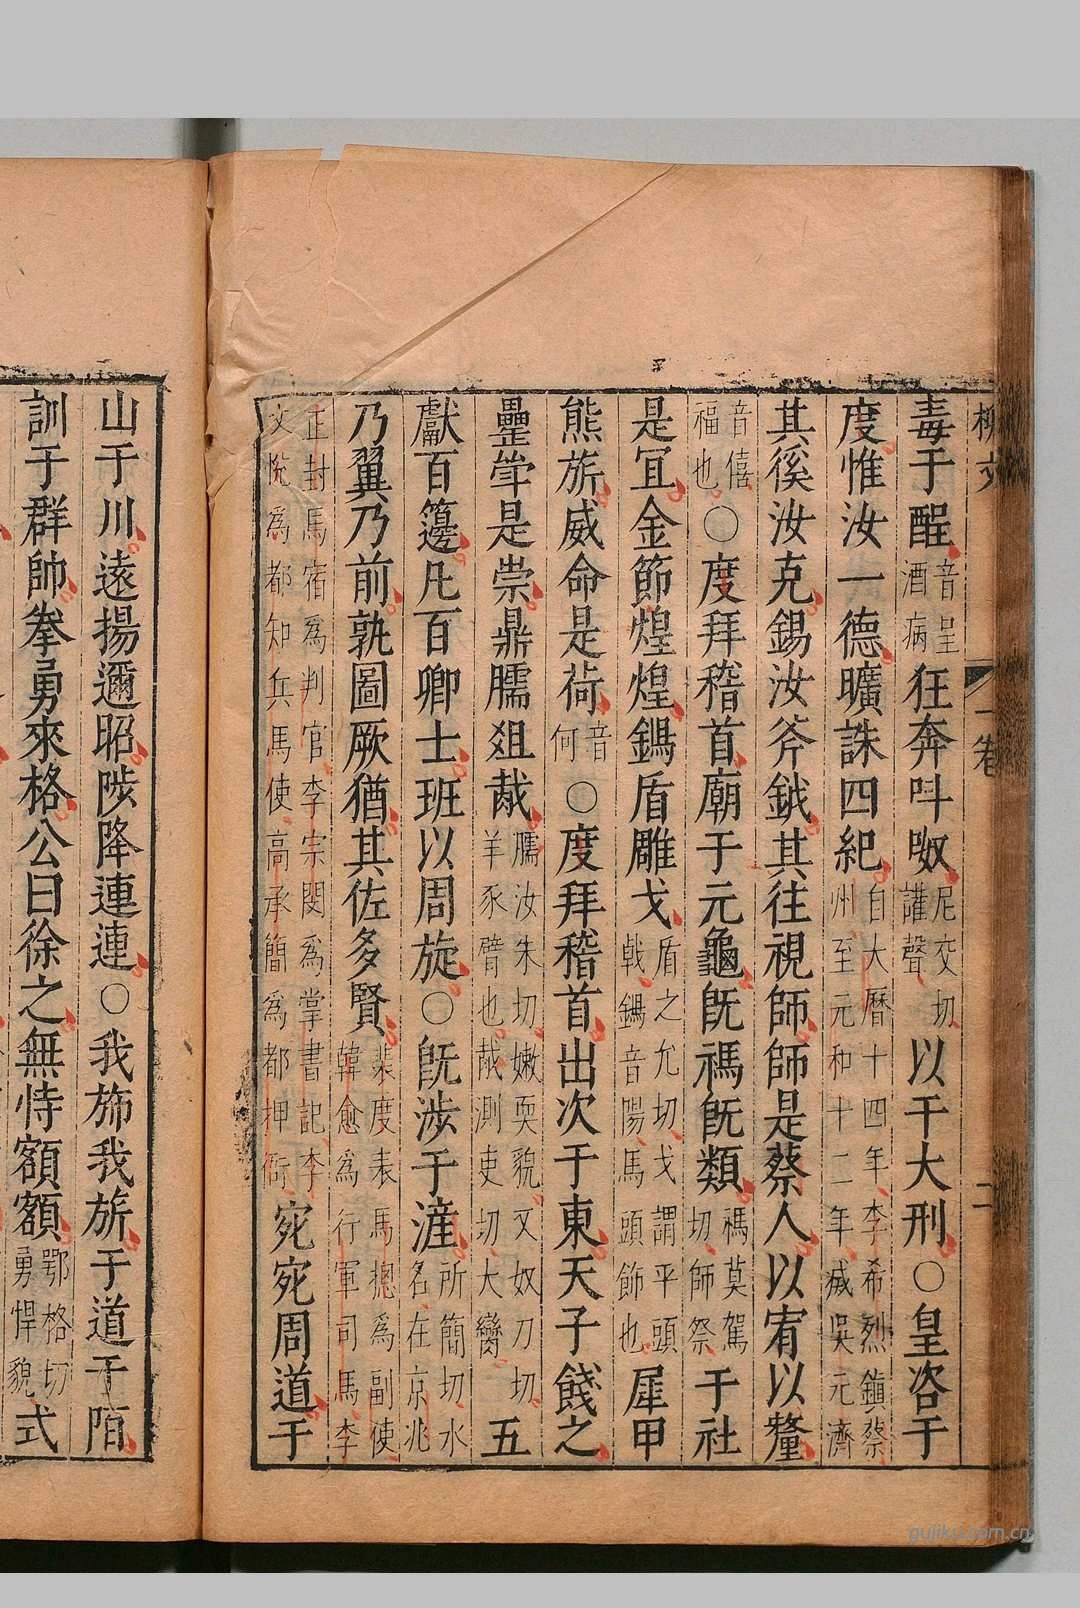 柳文 一卷 二
毒于酲音呈酒病狂奔叫呶尼交切讙聲以干大刑○皇咨于
度惟汝一德曠誅四紀自大曆十四年李希烈鎮蔡州至元和十二年滅吳元濟
其徯汝克錫汝斧鉞其往視師師是蔡人以宥以釐
音僖福也○度拜稽首廟于元龜旣禡旣類禡莫駕切師祭于社
是冝金節煌煌鍚盾雕戈盾之允切戈謂平頭戟鍚音陽馬頭飾也犀甲
熊旂威命是荷音何○度拜稽首出次于東天子餞之
罍斝是崇鼎臑爼胾臑汝朱切嫩耎貌又奴刀切羊豕臂也胾測吏切大臠五
獻百籩凡百卿士班以周旋○旣涉于滻所簡切水名在京兆
乃翼乃前孰圖厥猶其佐多賢裴度表馬摠為副使韓愈為行軍司馬李
正封馬宿為判官李宗閔為掌書記李文悅為都知兵馬使高承簡為都押衙宛宛周道于
山于川遠揚邇昭陟降連連○我斾我旂于道于陌
訓于群帥拳勇來格公曰徐之無恃額額鄂格切勇悍貌式
gujiku.com.cn